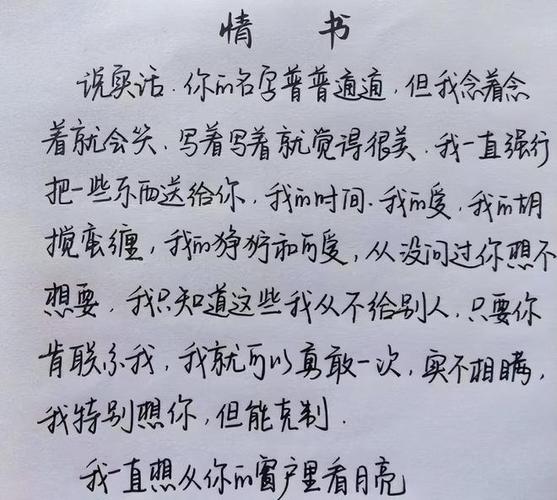 情 书
说实话.你的名字普普通通,但我念着念
着就会笑.写着写着就觉得很美.我一直强行
把一些东西送给你,我的时间.我的爱,我的胡
搅蛮缠,我的狰狞和可爱,从没问过你想不
想要,我只知道这些我从不给别人,只要你
肯联系我,我就可以勇敢一次,实不相瞒,
我特别想你,但能克制.
我一直想从你的窗户里看月亮